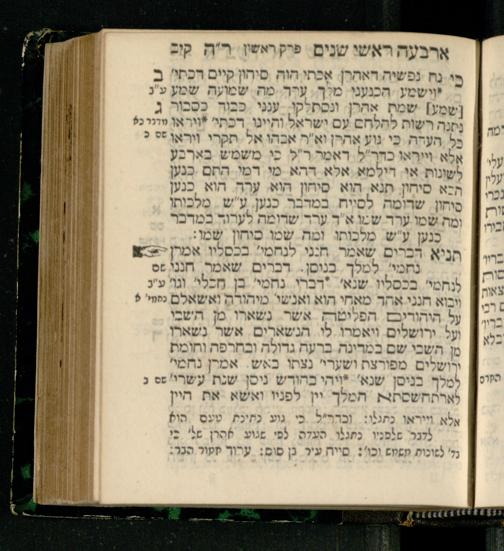 ארבעה ראשי שנים פרק ראשון ר"ה קיב
כי נח נפשיה דאהרן אכתי הוה סיחון קיים דכתי' ב
*וישמע הכנעני מלך ערד מה שמועה שמע ע"ב
[שמע] שמת אהרן ונסתלקו ענני כבוד כסבור ג
נתנה רשות להלחם עם ישראל והיינו דכתי' *ויראו במדבר כא
כל העדה כי גוע אהרן וא"ר אבהו אל תקרי ויראו שם כ
אלא וייראו כדר"ל דאמר ר"ל כי משמש בארבע
לשונות אי דילמא אלא דהא מי דמי התם כנען
הכא סיחון תנא הוא סיחון הוא ערד הוא כנען
סיחון שדומה לסייח במדבר כנען ע"ש מלכותו
ומה שמו ערד שמו א"ד ערד שדומה לערוד במדבר
כנען ע"ש מלכותו ומה שמו סיחון שמו:
תניא דברים שאמר חנני לנחמי' בכסליו אמרן
נחמי' למלך בניסן. דברים שאמר חנני שם
לנחמי' בכסליו שנא' *דברי נחמי' בן חכלי' וגו' ע"ב
ויבוא חנני אחד מאחי הוא ואנשי' מיהודה ואשאלם נחמי' א
על היהודים הפליטה אשר נשארו מן השבי
ועל ירושלים ויאמרו לי הנשארים אשר נשארו
מן השבי שם במדינה ברעה גדולה ובחרפה וחומת
ירושלים מפורצת ושערי' נצתו באש. אמרן נחמי'
למלך בניסן שנא' *ויהי בחודש ניסן שנת עשרי' שם ב
לארתחשסתא המלך יין לפניו ואשא את היין
אלא וייראו כתגלו: וכדר"ל כי גוע כתינת טעם הוא
לדבר שלפניו כתגלו העדה לפי שגוע אהרן של' כי
בד' לשונות משמש וכו': סייח עיר בן סוס: ערוד חמור הבר: